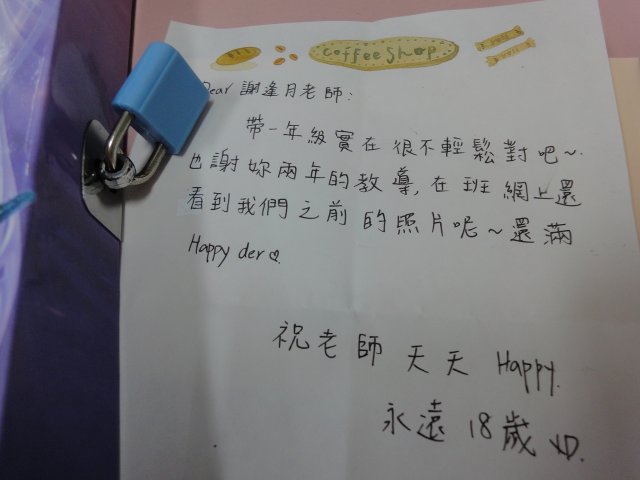 coffee shop
Dear 謝逢月老師:
帶一年級實在很不輕鬆對吧~.
也謝妳兩年的教導,在班網上還
看到我們之前的照片呢~還滿
Happy der♡.
祝老師天天 Happy.
永遠18歲 XD.